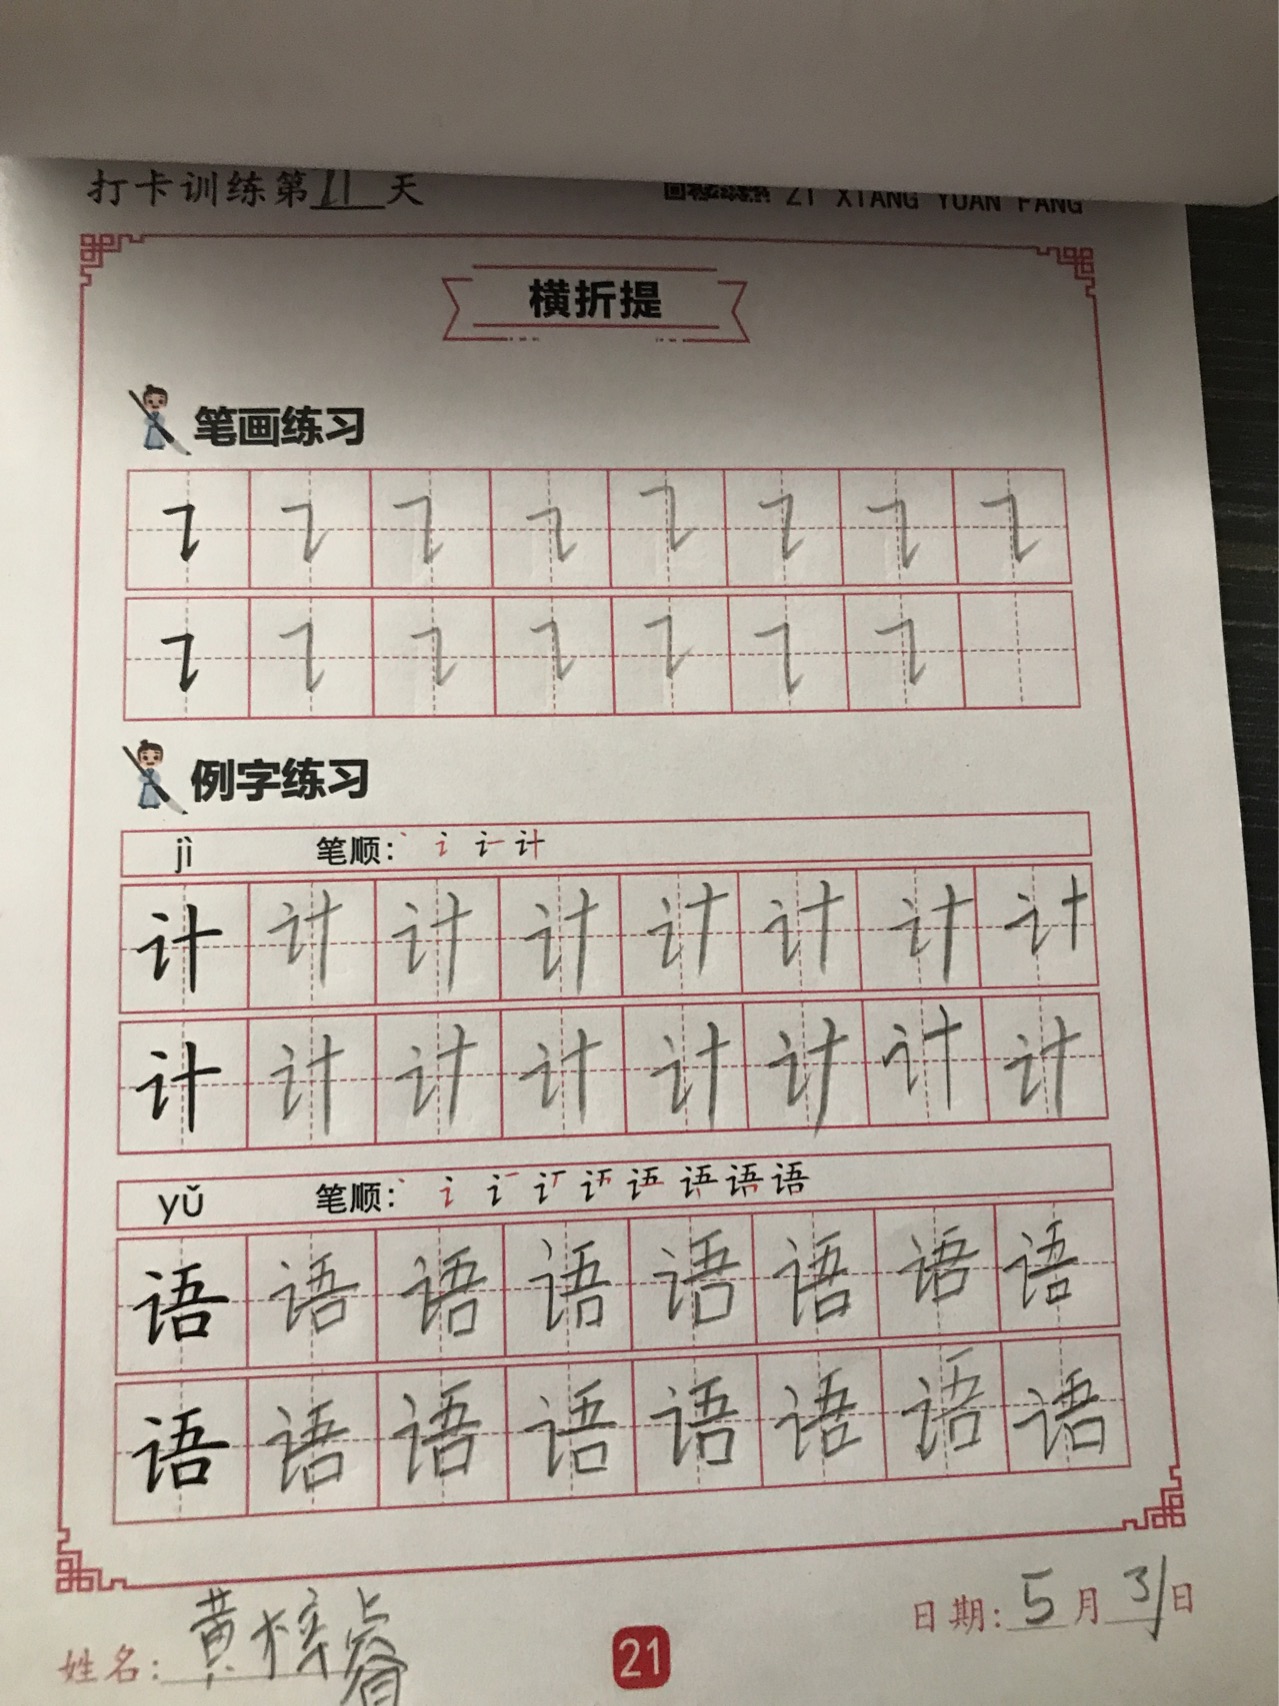 打卡训练第21天
ZI XIANG YUAN FANG
横折提
笔画练习
例字练习
jì 笔顺:
计 计 计 计 计 计 计 计
计 计 计 计 计 计 计 计
yǔ 笔顺:
语 语 语 语 语 语 语 语
语 语 语 语 语 语 语 语
日期: 5月31日
姓名: 黄梓睿
21